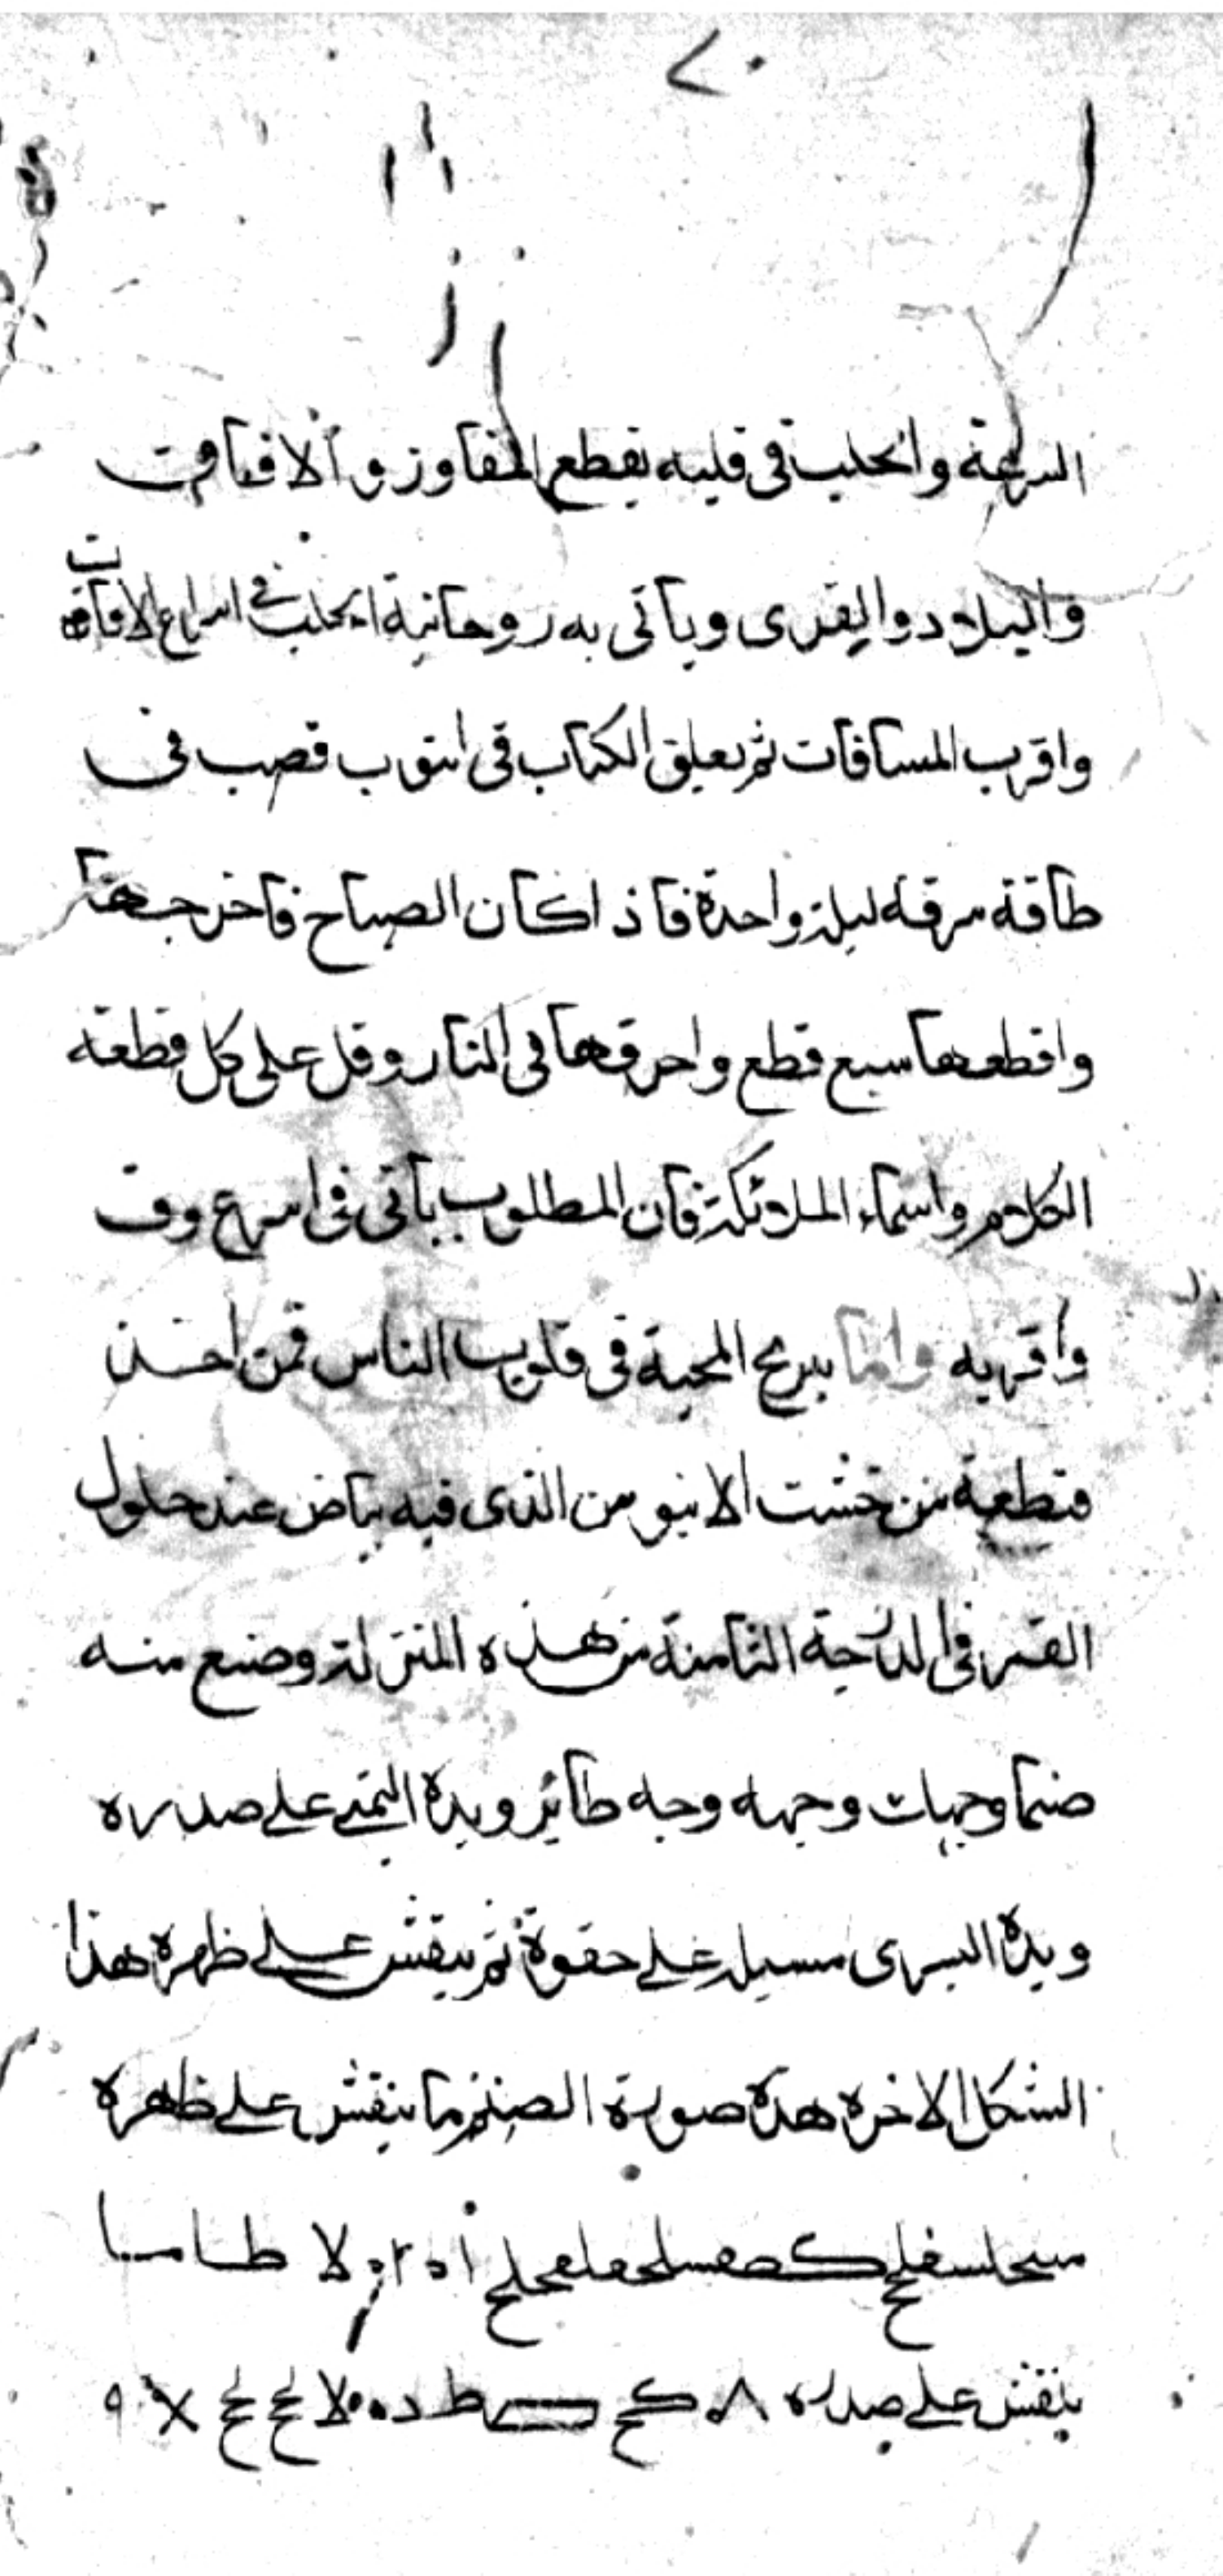 ٢٠
والجلب فى قلبه يقطع المفاوز و الافاقت
والبلاد والقرى وياتى به روحانية الجلب فى اسراع الاوقات
واقرب المسافات ثم يعلق الكتاب فى انبوب قصب فى
طاقة مرقه ليلة واحدة فاذ اكان الصباح فاخرجها
واقطعها سبع قطع واحرقها فى النار وقل على كل قطعة
الكلام واسماء الملائكة فان المطلوب ياتى فى اسرع وقت
واقربه واما بيرج المحبة فى قلوب الناس فمن احسن
قطعة من خشت الابنوس الذى فيه بياض عند حلول
القمر فى الدرجة الثامنة من هذه المنزلة وصنع منه
صنما وجهه وجه طائر ويده اليمنى على صدره
ويده اليسرى مسبلة على حقوة ثم ينقش على ظهره هذا
الشكل الاخره هذه صورة الصنم ما ينقش على ظهره
لا طا
ينقش على صدره ٨ كح ط ده لا لح لح ٩